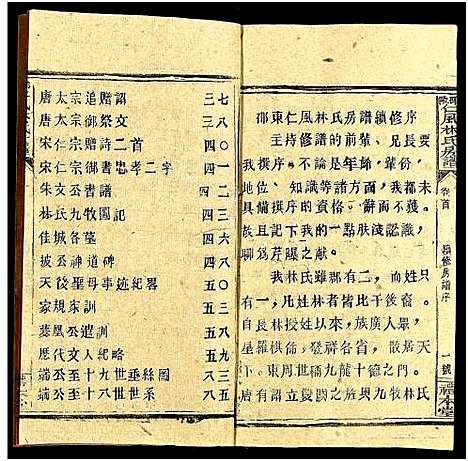 邵東仁風林氏房譜續修序
主持修譜的前輩、兄長要
我撰序。不論是年齡、輩份、
地位、知識諸方面，我都未
具備撰序的資格。辭而不獲。
故且記下我的一點膚淺認識，
聊為芹曝之献。
我林氏雖郡有二，而姓只
有一，凡姓林者皆比干後裔。
自長林授姓以來，族廣人眾，
星羅棋佈，發祥各省，散居環
宇。東周世稱九龍十德之門，
唐有詔立夐闕之旌與九牧林氏
卷首
續修房譜序
一號
唐太宗追贈詔 三七
唐太宗御祭文 三八
宋仁宗贈詩二首 四〇
宋仁宗御書忠孝二字 四一
朱文公書譜 四二
林氏九牧圖記 四三
佳城各墓 四六
披公神道碑 四八
天後聖母事迹紀畧 五〇
家規家訓 五三
蔂凰公遺訓 五八
歷代文人紀略 五九
端公至十九世垂絲圖 八三
端公至十八世世系 八五